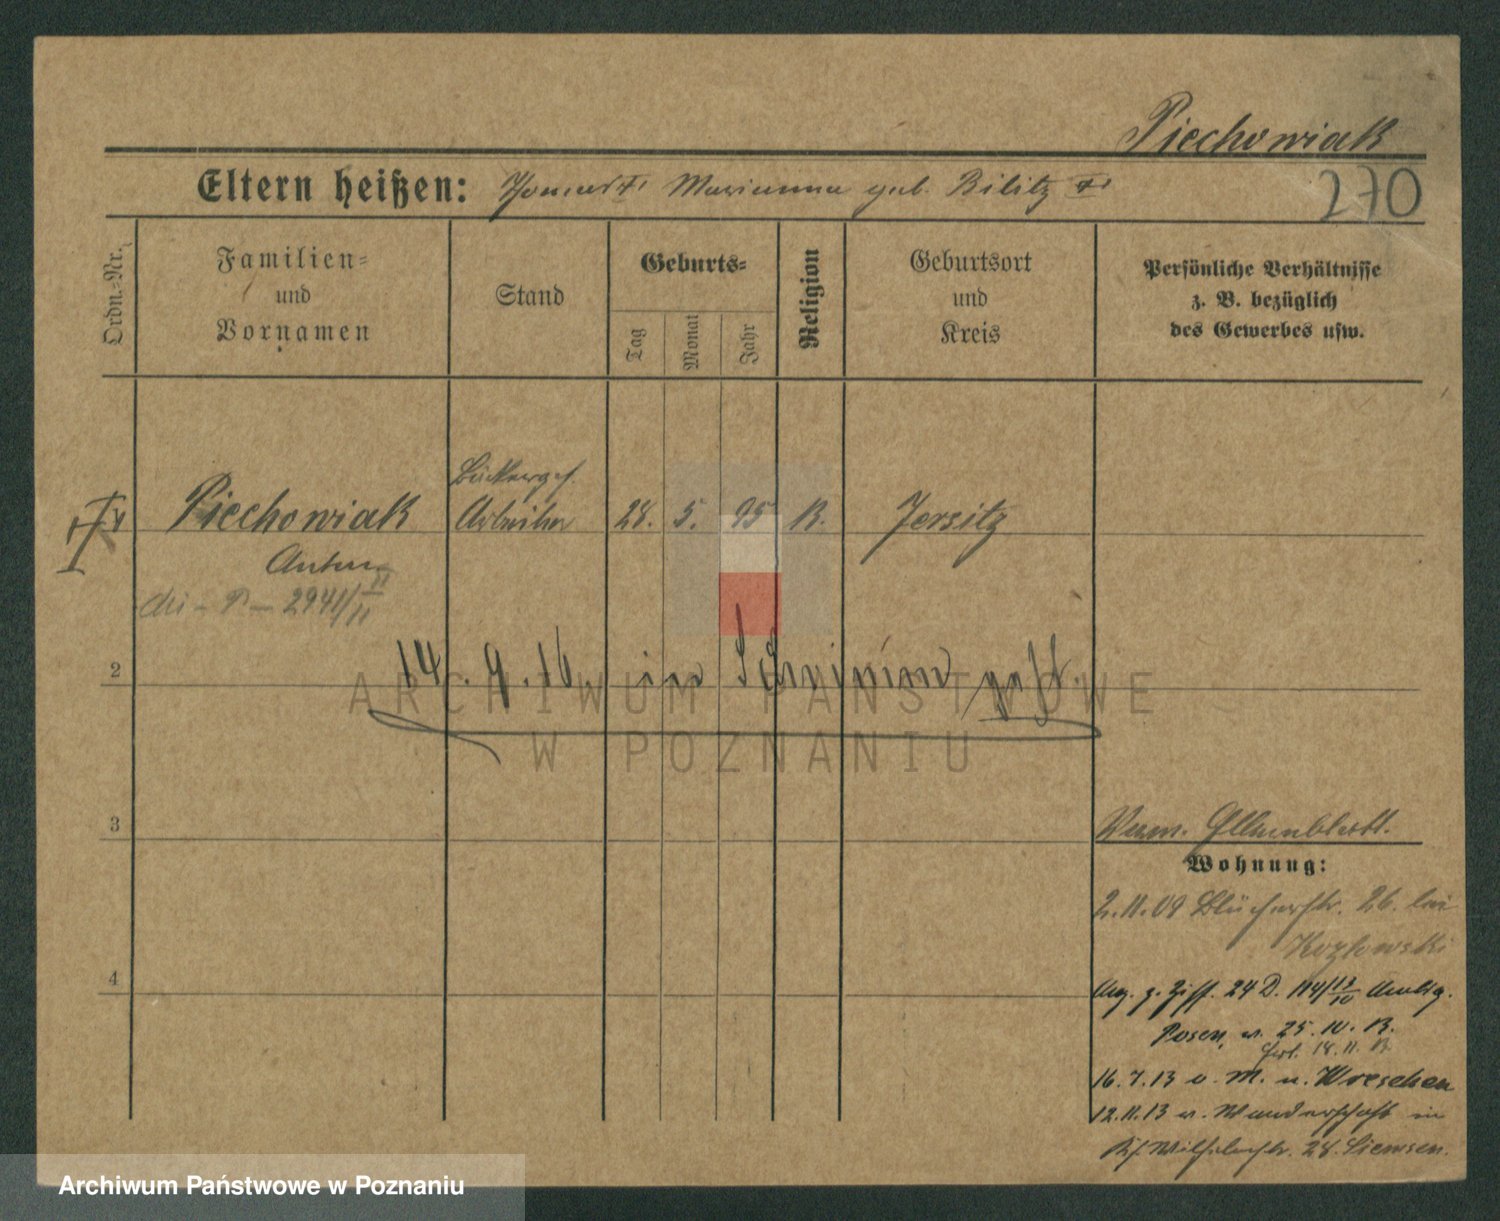 Piechowiak
Eltern heißen: Thomas †, Marianna geb. Bilitz †
270
Ordn.-Nr.
Familien-
und
Vornamen
Stand
Geburts-
Tag
Monat
Jahr
Religion
Geburtsort
und
Kreis
Persönliche Verhältnisse
z. B. bezüglich
des Gewerbes usw.
Bäckerges.
Piechowiak Arbeiter 28. 5. 95 K. Jersitz
Anton
P. 2941/
2
14. 9. 16. in gest.
ARCHIWUM PAŃSTWOWE
W POZNANIU
3
4
Verm.
Wohnung:
2.11.09 Blücherstr. 26. bei
Kozlowski
Ang. z. Ziff. 24 D. 114/13/10
Posen, v. 25.10.13.
18.11.13
16.7.13 v. M. n. Wreschen
12.11.13 v. Wanderschaft in
28. Siemsen.
Archiwum Państwowe w Poznaniu